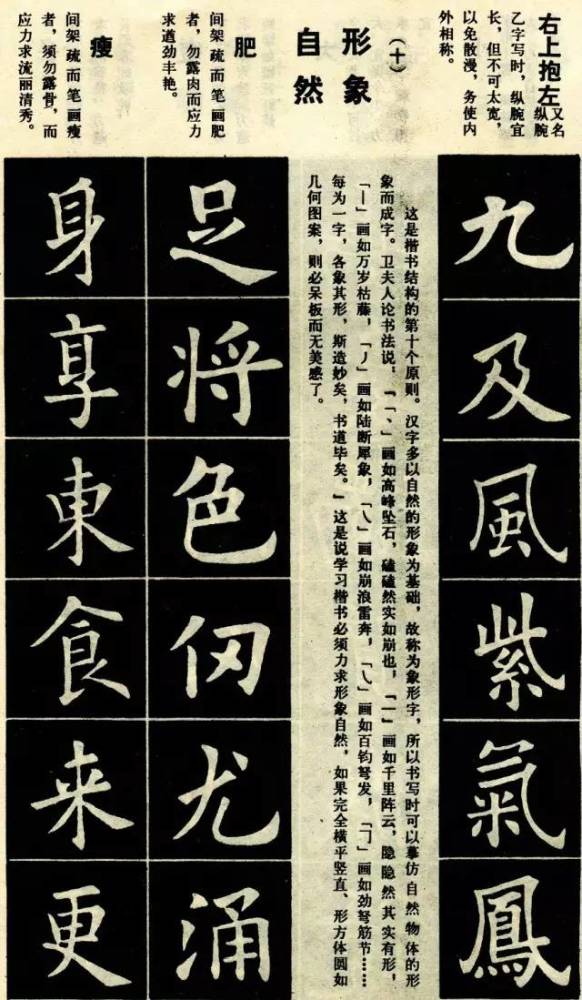 右上抱左
又名
纵腕
乙字写时，纵腕宜
长，但不可太宽，
以免散漫，务使内
外相称。
九
及
風
紫
氣
鳳
（十）
形象
自然
这是楷书结构的第十个原则。汉字多以自然的形象为基础，故称为象形字，所以书写时可以摹仿自然物体的形
象而成字。卫夫人论书法说，「「、」画如高峰坠石，磕磕然实如崩也，「一」画如千里阵云，隐隐然其实有形，
「丨」画如万岁枯藤，「丿」画如陆断犀象，「乀」画如崩浪雷奔，「乀」画如百钧弩发，「𠃌」画如劲弩筋节……
每为一字，各象其形，斯造妙矣，书道毕矣。」这是说学习楷书必须力求形象自然，如果完全横平竖直、形方体圆如
几何图案，则必呆板而无美感了。
肥
间架疏而笔画肥
者，勿露肉而应力
求遒劲丰艳。
足
将
色
仞
尤
涌
瘦
间架疏而笔画瘦
者，须勿露骨，而
应力求流丽清秀。
身
享
東
食
来
更